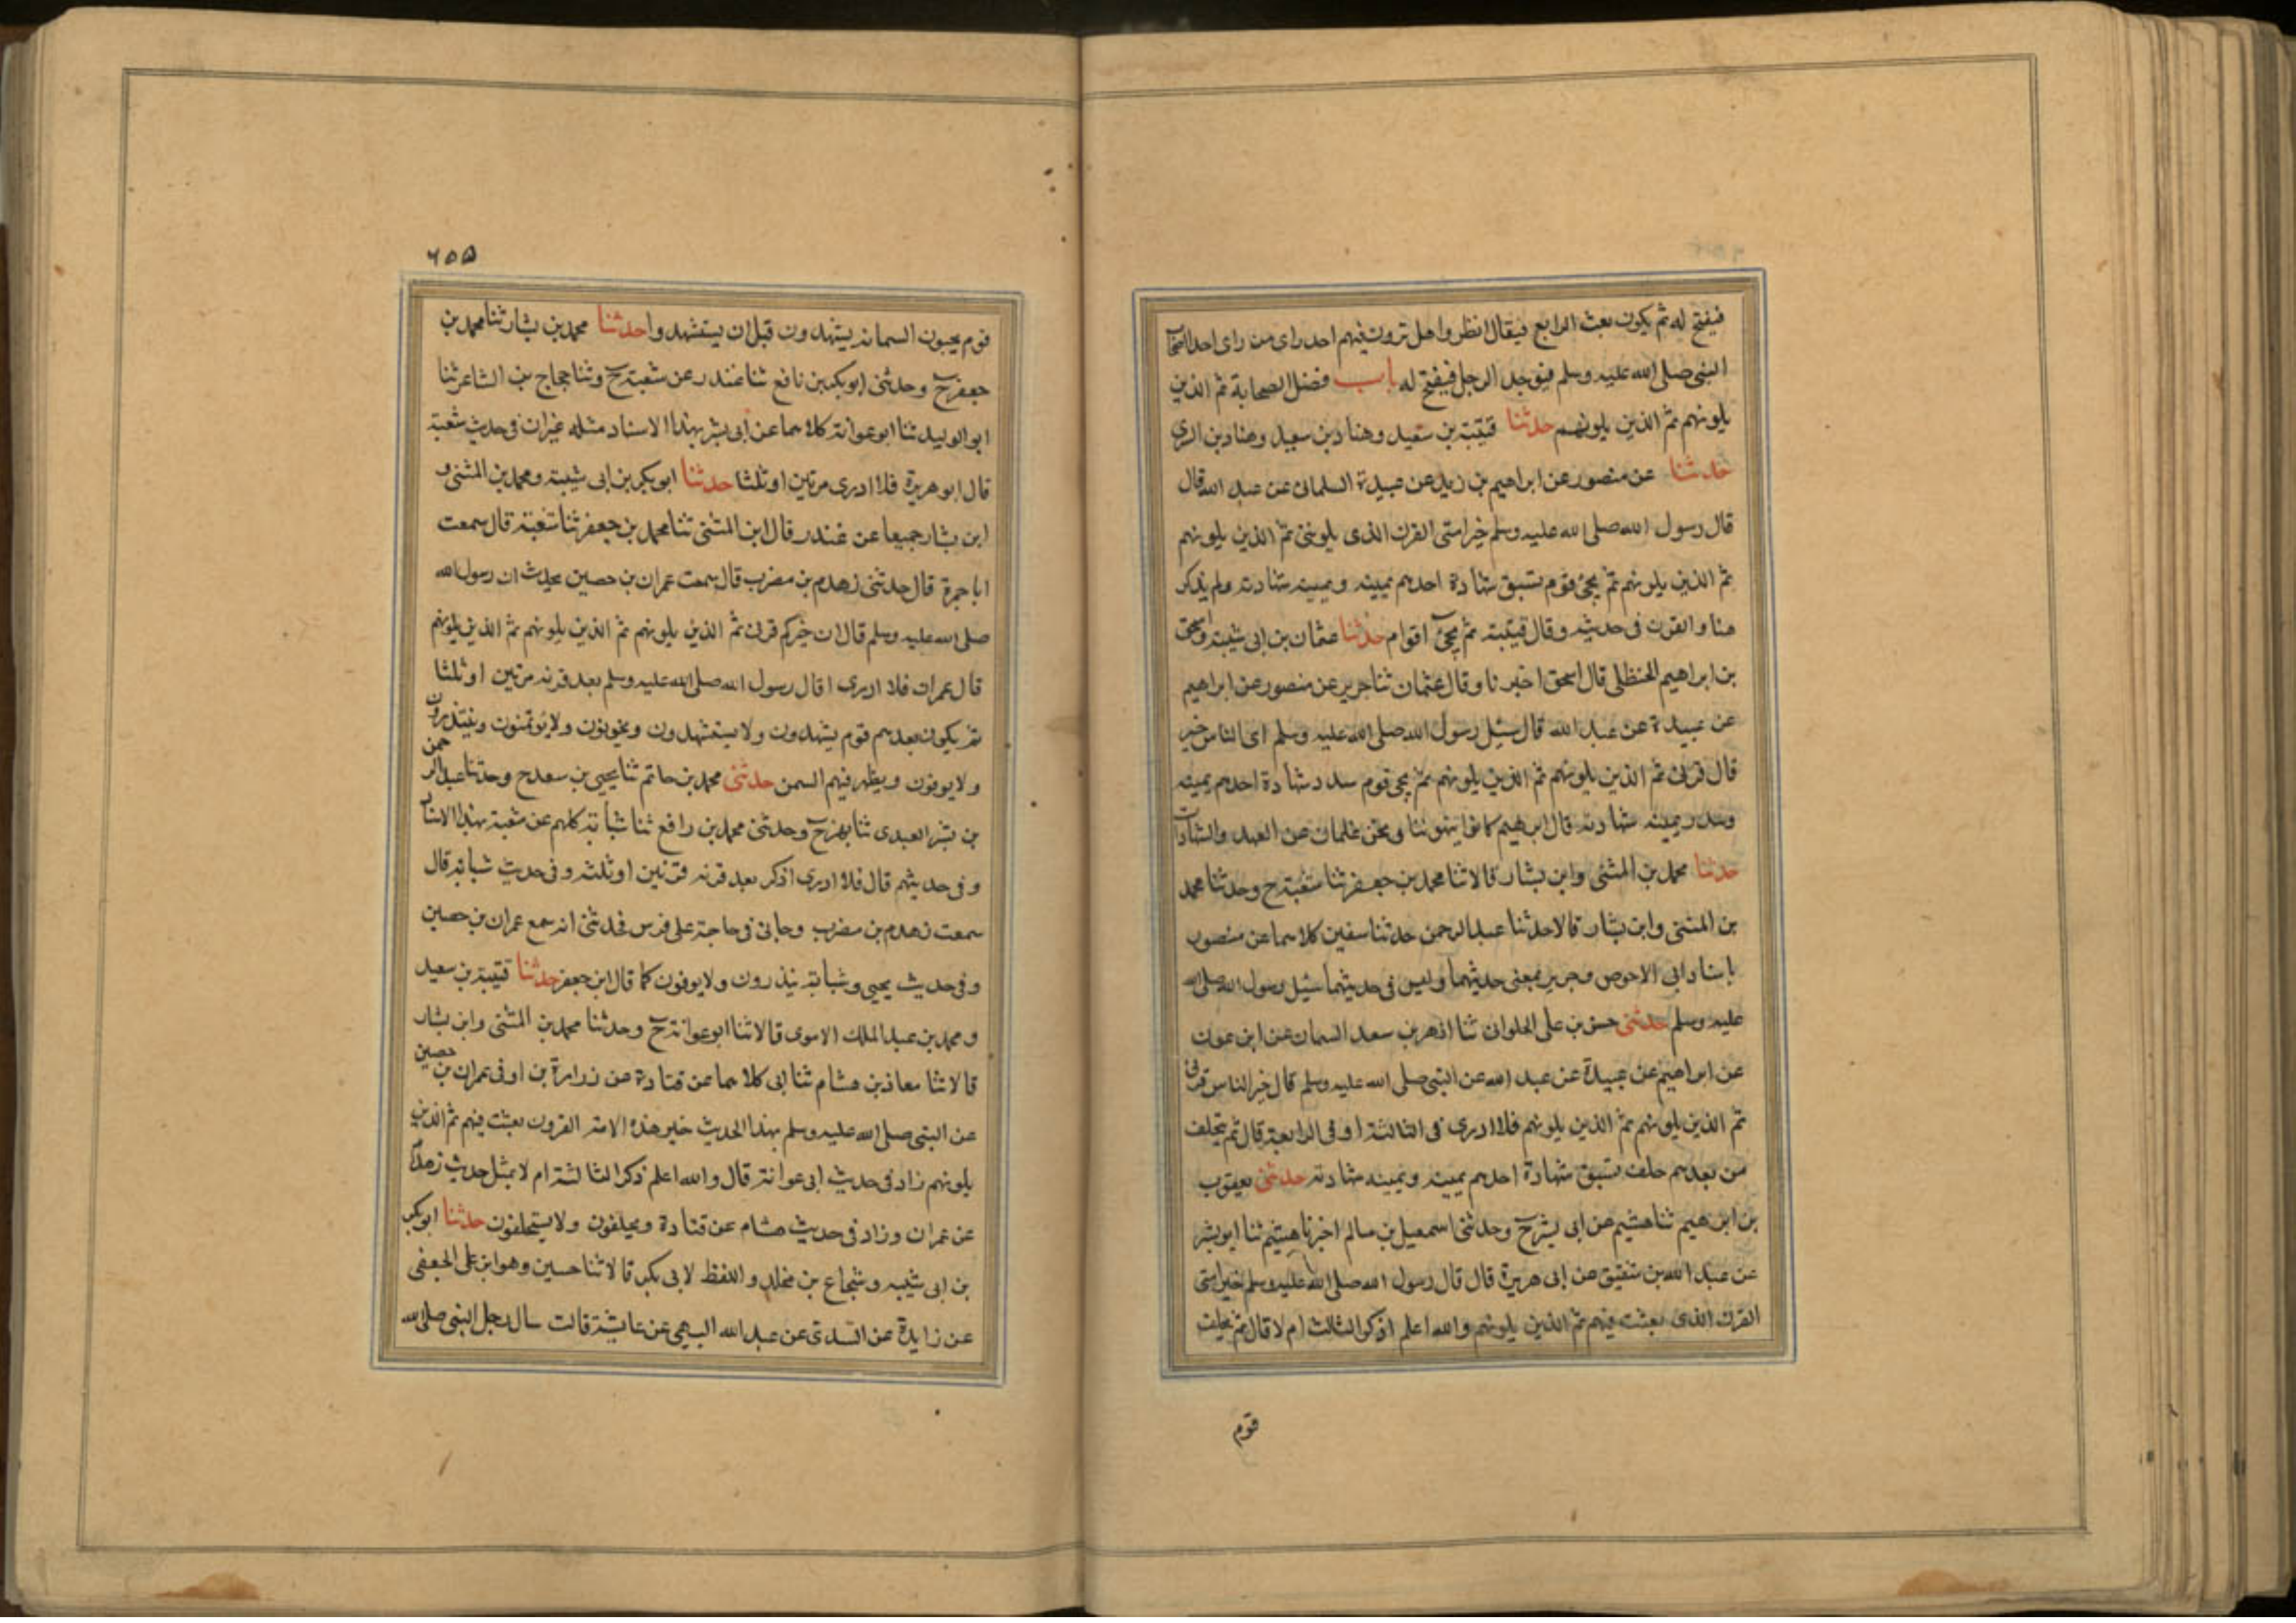 فيفتح له ثم يكون بعث الرابع فيقال انظروا هل ترون فيهم احد راى من راى احدا اصحاب
النبى صلى الله عليه وسلم فيوجد الرجل فيفتح له باب فضل الصحابة ثم الذين
يلونهم ثم الذين يلونهم حدثنا قتيبة بن سعيد وهناد بن سعيد وهناد بن السرى
حدثنا عن منصور عن ابراهيم بن زيد عن عبيدة السلمانى عن عبد الله قال
قال رسول الله صلى الله عليه وسلم خير امتى القرن الذى يلوننى ثم الذين يلونهم
ثم الذين يلونهم ثم يجئ قوم تسبق شهادة احدهم يمينه ويمينه شهادته ولم يذكر
هنا و القرن فى حديثه وقال قتيبة ثم يجئ اقوام حدثنا عثمان بن ابى شيبة واسحق
بن ابراهيم الحنظلى قال اسحق اخبرنا وقال عثمان ثنا جرير عن منصور عن ابراهيم
عن عبيدة عن عبد الله قال سئل رسول الله صلى الله عليه وسلم اى الناس خير
قال قرنى ثم الذين يلونهم ثم الذين يلونهم ثم يجى قوم شهادة احدهم يمينه
يمينه شهادته قال ابرهيم كانوا ينهوننا ونحن غلمان عن العهد والشهادات
حدثنا محمد بن المثنى وابن بشار قالا ثنا محمد بن جعفر ثنا شعبة ح وحدثنا محمد
بن المثنى وابن بشار قالا حدثنا عبد الرحمن حدثنا سفين كلاهما عن منصور
باسناد ابى الاحوص وجرير بمعنى حديثهما وليس فى حديثهما سئل رسول الله صلى الله
عليه وسلم حدثنى حسن بن على الحلوانى ثنا ازهر بن سعد السمان عن ابن عون
عن ابراهيم عن عبيدة عن عبد الله عن النبى صلى الله عليه وسلم قال خير الناس قرنى
ثم الذين يلونهم ثم الذين يلونهم فلا ادرى فى الثالثة او فى الرابعة قال ثم يتخلف
من بعدهم خلف تسبق شهادة احدهم يمينه ويمينه شهادته حدثنى يعقوب
بن ابرهيم ثنا هشيم عن ابى بشر ح وحدثنى اسمعيل بن سالم اخبرنا هشيم ثنا ابو بشر
عن عبد الله بن شقيق عن ابى هريرة قال قال رسول الله صلى الله عليه وسلم خير امتى
القرن الذى بعثت فيهم ثم الذين يلونهم والله اعلم اذكر الثالث ام لا قال ثم يخلف
قوم
٦٥٥
قوم يحبون السمانة يشهدون قبل ان يستشهدوا حدثنا محمد بن بشار ثنا محمد بن
جعفر ح وحدثنى ابو بكر بن نافع ثنا غندر عن شعبة ح وثنا حجاج بن الشاعر ثنا
ابو الوليد ثنا ابو عوانة كلاهما عن ابى بشر بهذا الاسناد مثله غير ان فى حديث شعبة
قال ابو هريرة فلا ادرى مرتين او ثلثا حدثنا ابو بكر بن ابى شيبة ومحمد بن المثنى و
ابن بشار جميعا عن غندر قال ابن المثنى ثنا محمد بن جعفر ثنا شعبة قال سمعت
ابا جمرة قال حدثنى زهدم بن مضرب قال سمعت عمران بن حصين يحدث ان رسول الله
صلى الله عليه وسلم قال ان خيركم قرنى ثم الذين يلونهم ثم الذين يلونهم ثم الذين يلونهم
قال عمران فلا ادرى اقال رسول الله صلى الله عليه وسلم بعد قرنه مرتين او ثلثا
ثم يكون بعدهم قوم يشهدون ولا يستشهدون ويخونون ولا يؤتمنون وينذرون
ولا يوفون ويظهر فيهم السمن حدثنى محمد بن حاتم ثنا يحيى بن سعد ح وحدثنا عبد الرحمن
بن بشر العبدى ثنا بهز ح وحدثنى محمد بن رافع ثنا شبابة كلهم عن شعبة بهذا الاسناد
وفى حديثهم قال فلا ادرى اذكر بعد قرنه قرنين او ثلثه وفى حديث شبابة قال
سمعت زهدم بن مضرب وجانى فى حاجة على فرس فحدثنى انه سمع عمران بن حصين
وفى حديث يحيى وشبابة ينذرون ولا يوفون كما قال ابن جعفر حدثنا قتيبة بن سعيد
ومحمد بن عبد الملك الاموى قالا ثنا ابو عوانة ح وحدثنا محمد بن المثنى وابن بشار
قالا ثنا معاذ بن هشام ثنا ابى كلاهما عن قتادة عن زرارة بن اوفى عمران بن حصين
عن النبى صلى الله عليه وسلم بهذا الحديث خير هذه الامة القرون بعثت فيهم ثم الذين
يلونهم زاد فى حديث ابى عوانة قال والله اعلم ذكر الثالثة ام لا بمثل حديث زهدم
عن عمران وزاد فى حديث هشام عن قتادة ويحلفون ولا يستحلفون حدثنا ابو بكر
بن ابى شيبه وشجاع بن مخلد واللفظ لابى بكر قالا ثنا حسين وهو ابن على الجعفى
عن زايدة عن السدى عن عبد الله البهى عن عايشة قالت سال رجل النبى صلى الله